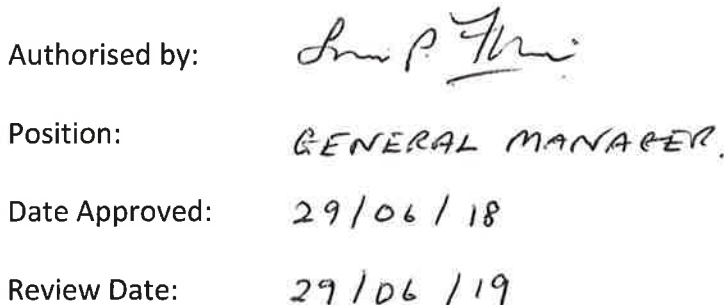 Authorised by:
Position: GENERAL MANAGER.
Date Approved: 29/06/18
Review Date: 29/06/19